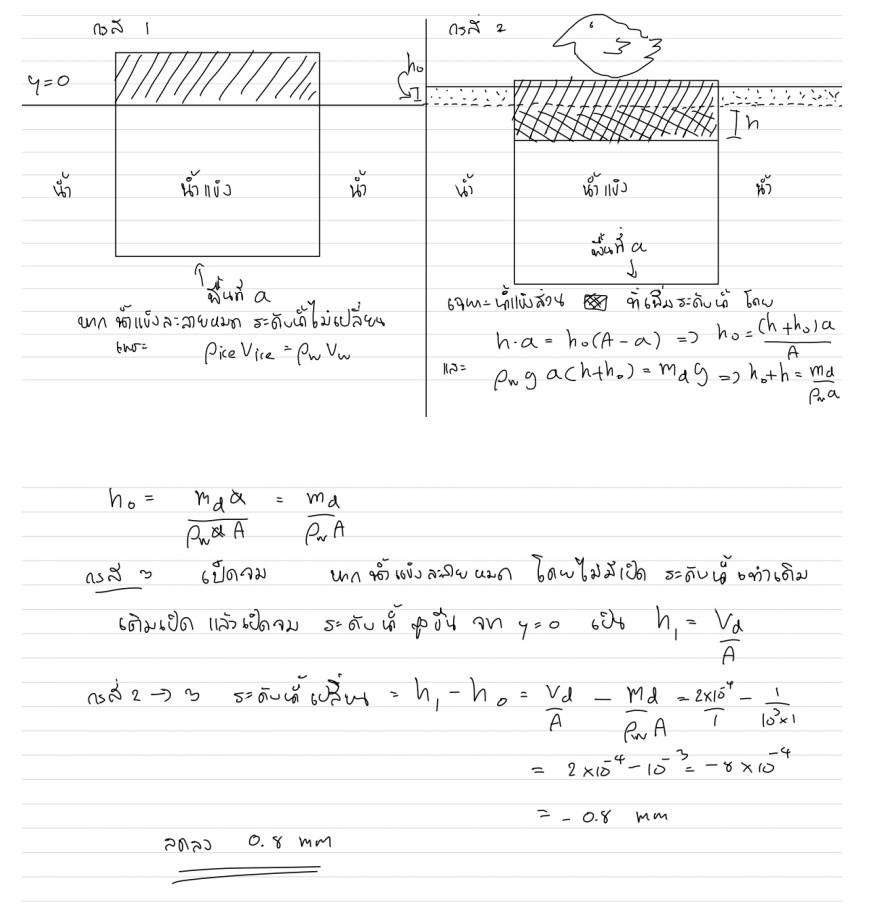 กรณี 1
y=0
น้ำ
น้ำแข็ง
น้ำ
พื้นที่ a
หาก น้ำแข็งละลายหมด ระดับน้ำไม่เปลี่ยน
เพราะ ρice Vice = ρw Vw
กรณี 2
h₀
h
น้ำ
น้ำแข็ง
น้ำ
พื้นที่ a
เฉพาะน้ำแข็งส่วน ที่เพิ่มระดับน้ำ โดย
h·a = h₀(A-a) => h₀ = (h+h₀)a/A
และ ρw g a(h+h₀) = md g => h₀+h = md/ρw a
h₀ = md a/ρw a A = md/ρw A
กรณี 3 เป็ดจม หาก น้ำแข็งละลายหมด โดยไม่มีเป็ด ระดับน้ำ เท่าเดิม
เติมเป็ด แล้วเป็ดจม ระดับน้ำ สูงขึ้น จาก y=0 เป็น h₁ = Vd/A
กรณี 2 → 3 ระดับน้ำเปลี่ยน = h₁ - h₀ = Vd/A - md/ρw A = 2×10⁻⁴/1 - 1/10³×1
= 2×10⁻⁴ - 10⁻³ = -8×10⁻⁴
= - 0.8 mm
ลดลง 0.8 mm